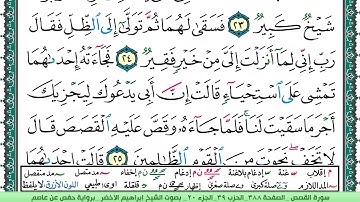 شَيْخٌ كَبِيرٌ ٢٣ فَسَقَىٰ لَهُمَا ثُمَّ تَوَلَّىٰٓ إِلَى ٱلظِّلِّ فَقَالَ
رَبِّ إِنِّى لِمَآ أَنزَلْتَ إِلَىَّ مِنْ خَيْرٍ فَقِيرٌ ٢٤ فَجَآءَتْهُ إِحْدَىٰهُمَا
تَمْشِى عَلَى ٱسْتِحْيَآءٍ قَالَتْ إِنَّ أَبِى يَدْعُوكَ لِيَجْزِيَكَ
أَجْرَ مَا سَقَيْتَ لَنَا فَلَمَّا جَآءَهُۥ وَقَصَّ عَلَيْهِ ٱلْقَصَصَ قَالَ
لَا تَخَفْ نَجَوْتَ مِنَ ٱلْقَوْمِ ٱلظَّٰلِمِينَ ٢٥ قَالَتْ إِحْدَىٰهُمَا
سورة القصص الصفحة ٣٨٨ الحزب ٣٩ الجزء ٢٠ بصوت الشيخ ابراهيم الأخضر برواية حفص عن عاصم